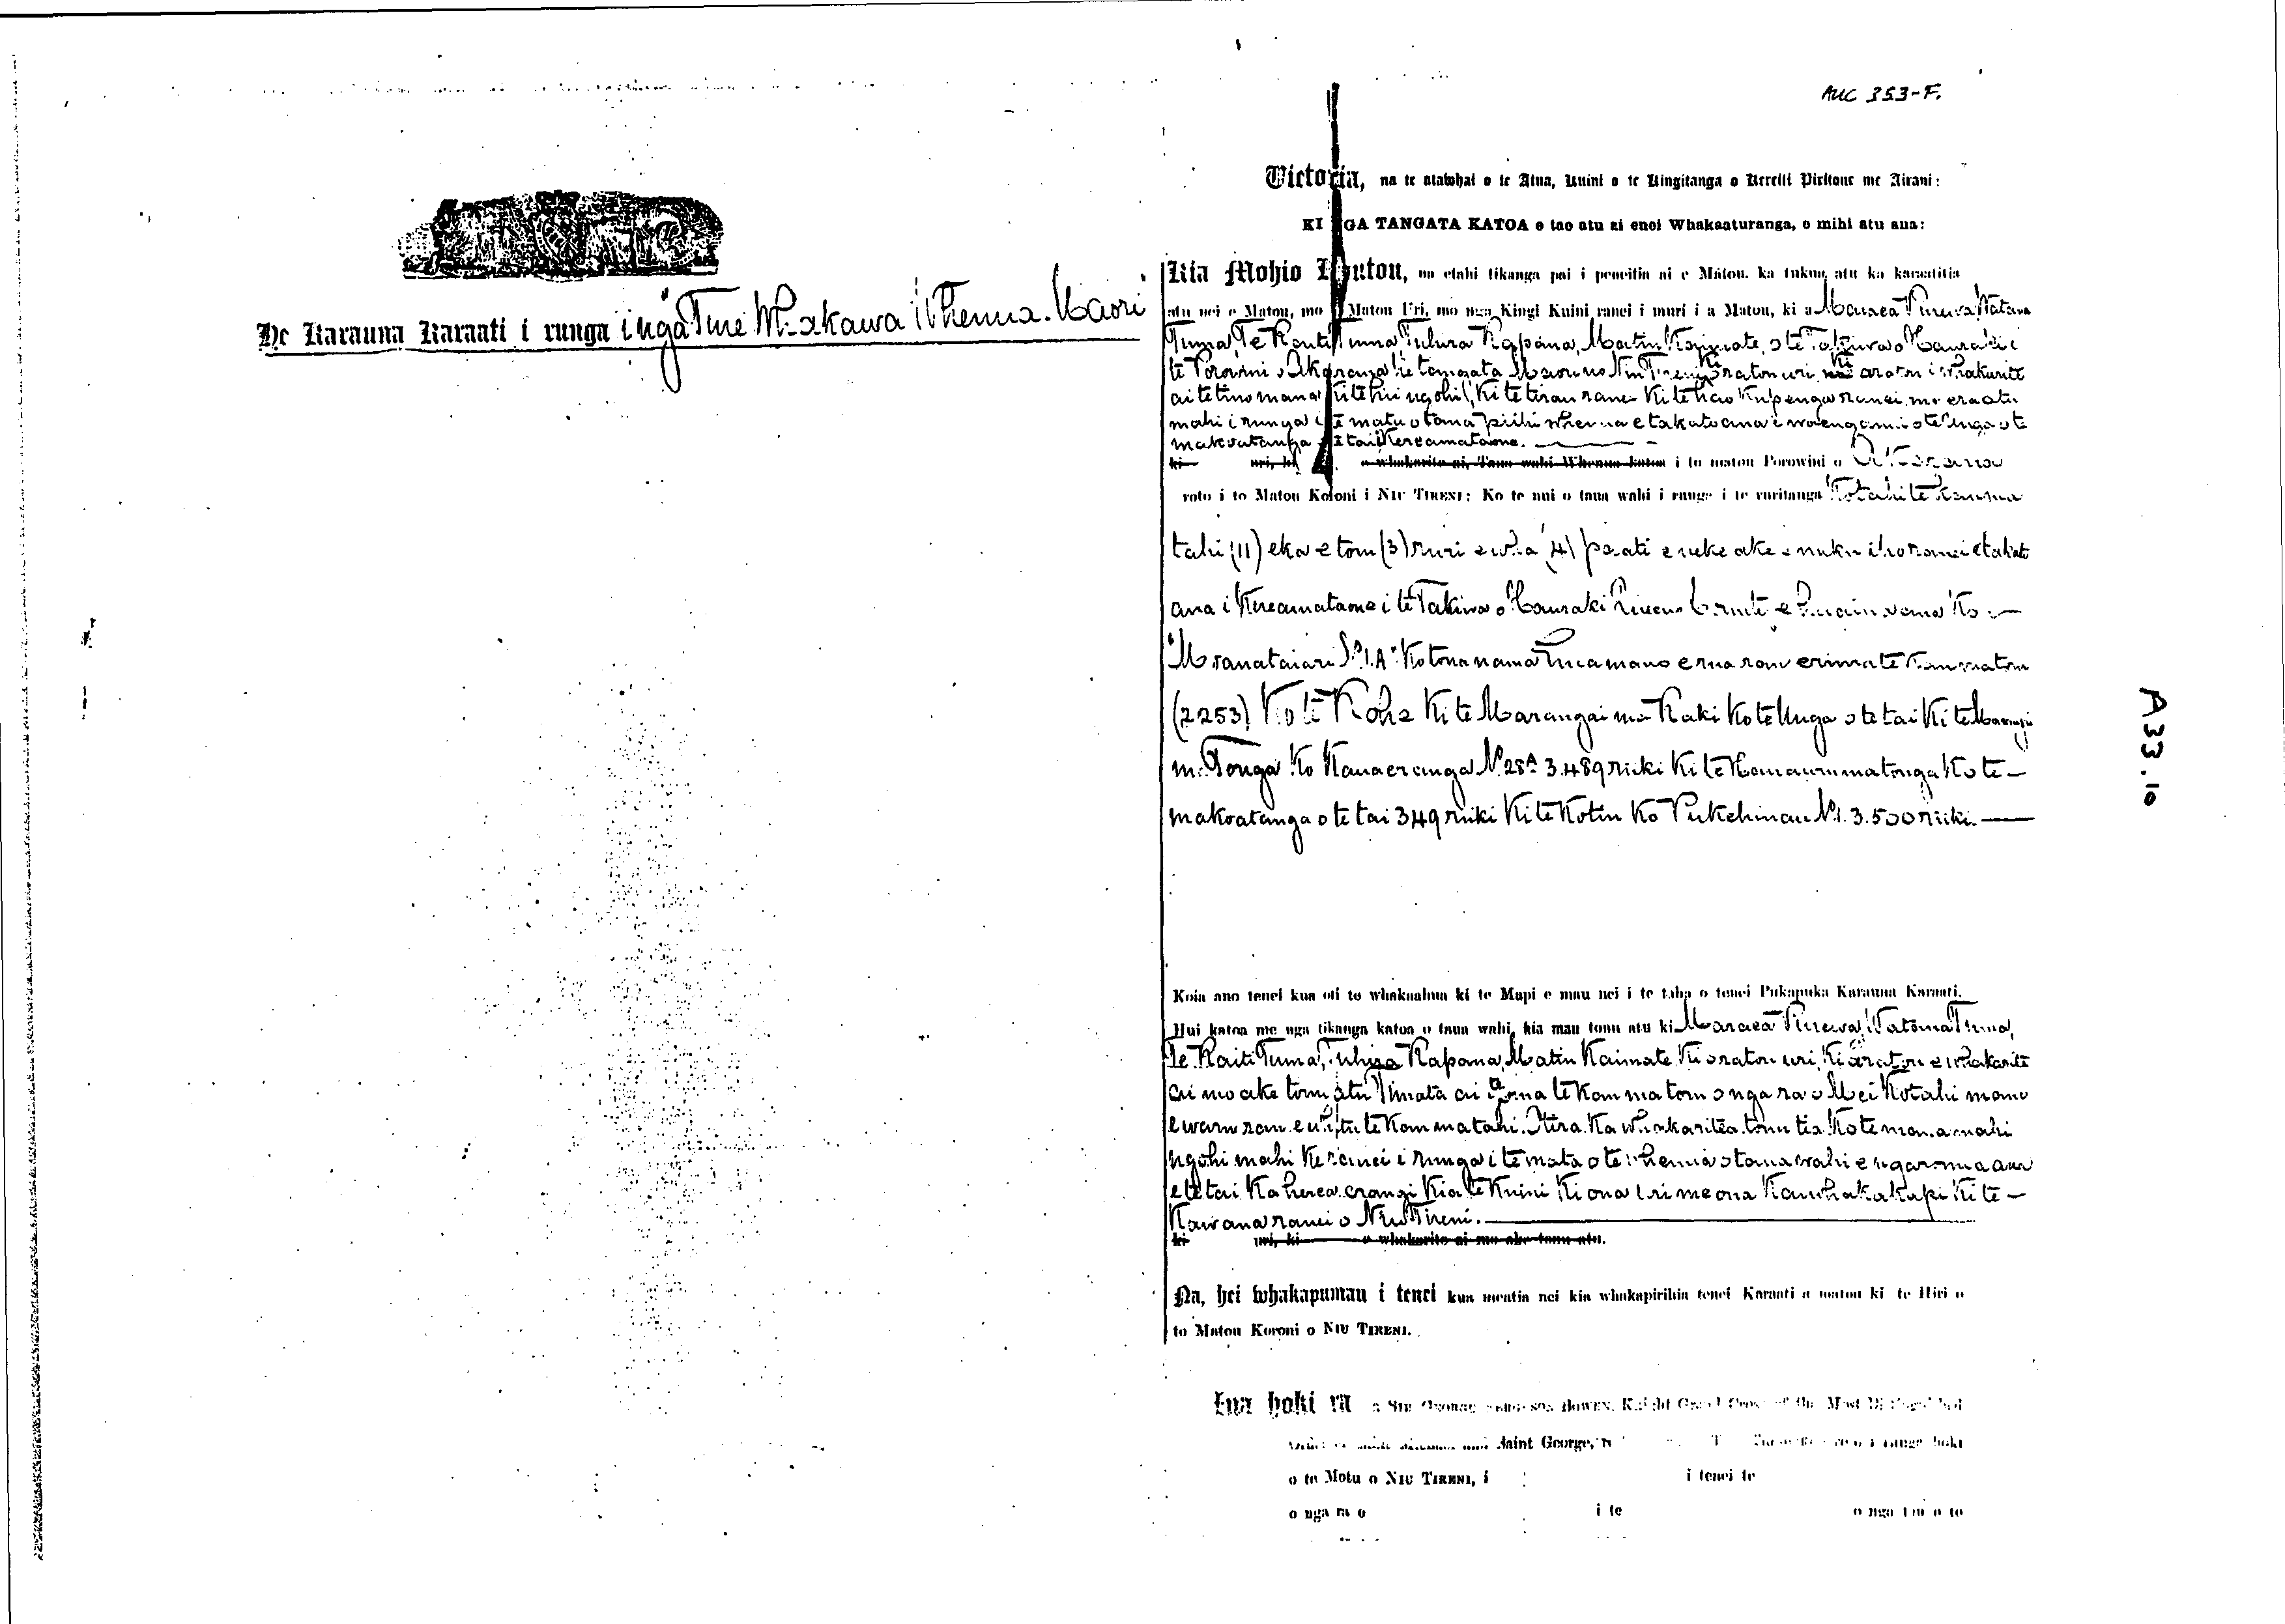 AUC 353-F.
He Karauna Karaati i runga i nga Ture Whakawa Whenua Maori
Victoria, na te atawhai o te Atua, Kuini o te Kingitanga o Kereiti Piritone me Airani:
KI NGA TANGATA KATOA e tae atu ai enei Whakaaturanga, e mihi atu ana:
Kia Mohio Koutou, na etahi tikanga pai i peneitia ai e Matou, ka tukua atu ka karaatitia
atu nei e Matou, mo Matou Uri, mo nga Kingi Kuini ranei i muri i a Matou, ki a Maraea Tinewa Watana
Tuma, Te Raiti Tuma Tuhira Rapana, Matiu Kaimate, o te Takiwa o Hauraki i
te Porowini o Akarana he tangata Maori no Niu Tireni ki o ratou uri ki a ratou i whakarite
ai te tino mana ki te hii ngohi, ki te tirau ranei ki te hao kupenga ranei, me era atu
mahi i runga i te mata o taua piihi whenua e takoto ana i waenganui o te Unga o te
makoatanga o te tai Kereamataone.
ki uri, ki e whakarite ai, Taua wahi Whenua katoa i to matou Porowini o Akarana
roto i to Matou Koloni i NIU TIRENI: Ko te nui o taua wahi i runga i te ruritanga Kotahi te kau ma
tahi (11) eka e toru (3) ruri e wha (4) paati e neke ake e nuku iho ranei e takoto
ana i Kereamataone i te Takiwa o Hauraki
Moanataiari No 1.A. Ko tona nama E rua mano e rua rau e rima te kau ma toru
(2253) Ko te Rohe ki te Marangai ma Raki ko te Unga o te tai ki te Marangai
ma Tonga ko Kauaeranga No 28A 3.489 riiki ki te Hauauru ma tonga ko te
makoatanga o te tai 349 riiki ki te Kotiu ko Pukehinau No 1. 3.500 riiki.
Koia ano tenei kua oti te whakaahua ki te Mapi e mau nei i te taha o tenei Pukapuka Karauna Karaati.
Hui katoa me nga tikanga katoa o taua wahi, kia mau tonu atu ki Maraea Tinewa, Watana Tuma,
Te Raiti Tuma, Tuhira Rapana, Matiu Kaimate ki o ratou uri, ki a ratou e whakarite
ai mo ake tonu atu Timata ai i te rua te kau ma toru o nga ra o Mei Kotahi mano
e waru rau e whitu te kau ma tahi. Otira ka whakaritea tonutia ko te mana mahi
ngohi mahi ke ranei i runga i te mata o te whenua o taua wahi e ngaromia ana
e te tai ka herea erangi kia te Kuini ki ona Uri me ona Kaiwhakakapi ki te
Kawana ranei o Niu Tireni.
ki uri, ki e whakarite ai mo ake tonu atu.
Na, hei whakapumau i tenei kua meatia nei kia whakapirihia tenei Karaati a matou ki te Hiri o
to Matou Koroni o NIU TIRENI.
Ena hoki ra a SIR GEORGE FERGUSON BOWEN, Knight Grand Cross of the Most Distinguished
Saint George, runga hoki
o te Motu o NIU TIRENI, i i tenei te
o nga ra o i te o nga tau o to
A33.10